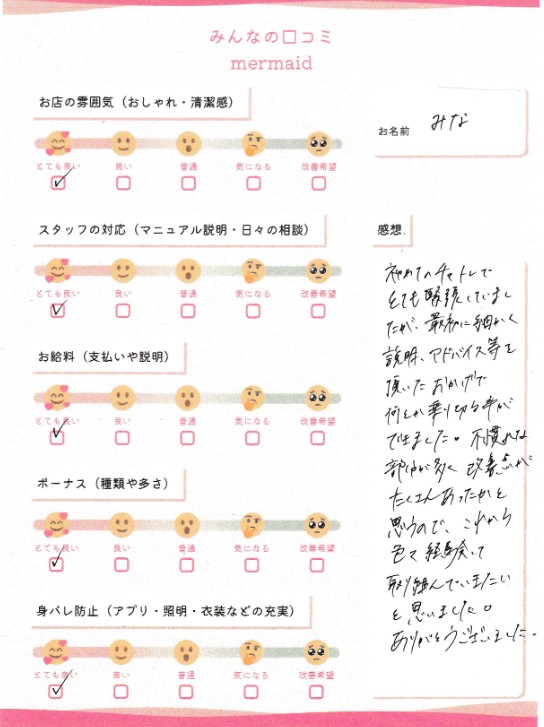 みんなの口コミ
mermaid
お店の雰囲気（おしゃれ・清潔感）
とても良い 良い 普通 気になる 改善希望
スタッフの対応（マニュアル説明・日々の相談）
とても良い 良い 普通 気になる 改善希望
お給料（支払いや説明）
とても良い 良い 普通 気になる 改善希望
ボーナス（種類や多さ）
とても良い 良い 普通 気になる 改善希望
身バレ防止（アプリ・照明・衣装などの充実）
とても良い 良い 普通 気になる 改善希望
お名前 みな
感想
初めてのチャトレで
とても緊張していまし
たが、最初に細かく
説明、アドバイス等を
頂いたおかげで
何とか乗り切る事が
できました。不慣れな
部分が多く改善点が
たくさんあったかと
思うので、これから
色々経験して
取り組んでいきたい
と思いました。
ありがとうございました。